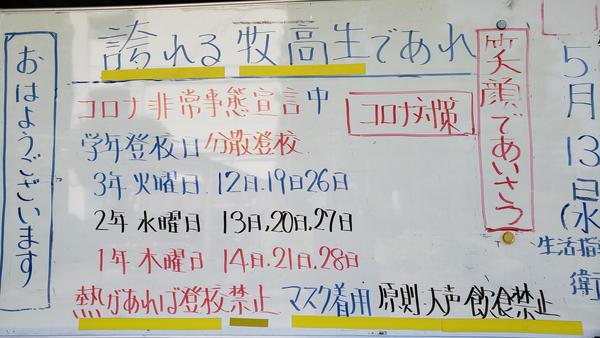 おはようございます
誇れる牧高生であれ
コロナ非常事態宣言中
コロナ対策
学年登校日 分散登校
3年 火曜日 12日.19日26日
2年 水曜日 13日,20日,27日
1年 木曜日 14日.21日.28日
熱があれば登校禁止 マスク着用 原則 大声 飲食禁止
笑顔であいさつ
5月13日(水
生活指
衛